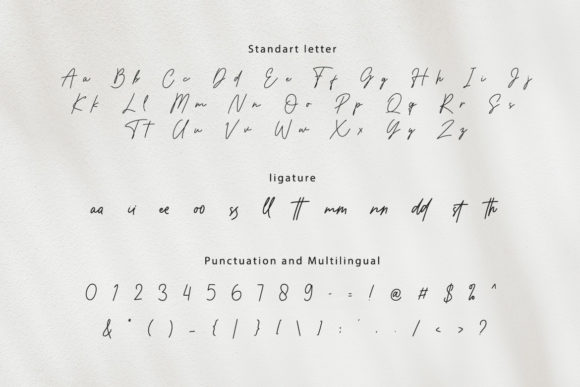 Standart letter
Aa Bb Cc Dd Ee Ff Gg Hh Ii Jj
Kk Ll Mm Nn Oo Pp Qq Rr Ss
Tt Uu Vv Ww Xx Yy Zz
ligature
aa ii ee oo ss ll tt mm nn dd st th
Punctuation and Multilingual
0 1 2 3 4 5 6 7 8 9 - = ! @ # $ % ^
& * ( ) _ { | } [ \ ] : ' . . / < > ?